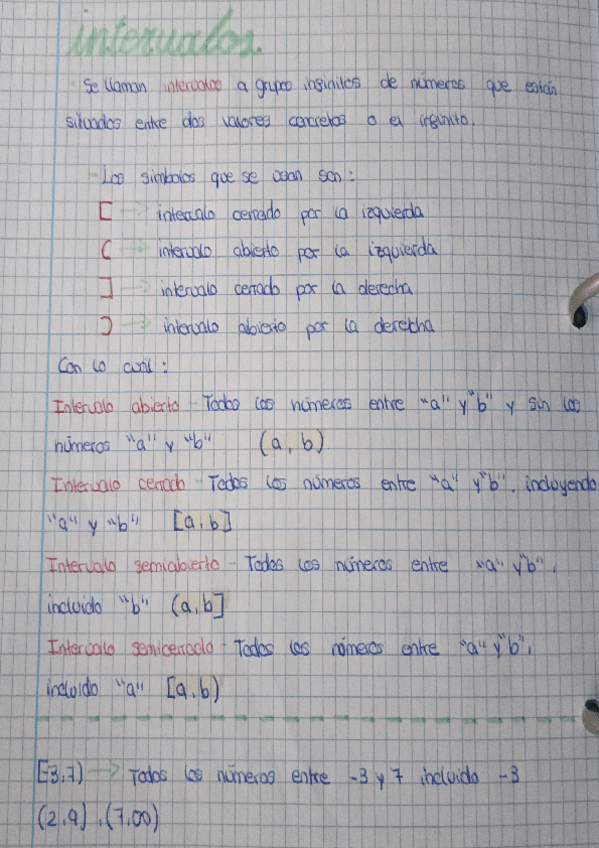 intervalos.
Se llaman intervalos a grupos infinitos de números que están
situados entre dos valores concretos o el infinito.
- Los símbolos que se usan son:
[ → intervalo cerrado por la izquierda
( → intervalo abierto por la izquierda
] → intervalo cerrado por la derecha
) → intervalo abierto por la derecha
Con lo cuál:
Intervalo abierto - Todos los números entre "a" y "b" y sin los
números "a" y "b" (a, b)
Intervalo cerrado - Todos los números entre "a" y "b", incluyendo
"a" y "b" [a, b]
Intervalo semiabierto - Todos los números entre "a" y "b",
incluido "b" (a, b]
Intervalo semicerrado - Todos los números entre "a" y "b",
incluido "a" [a, b)
[-3, 7) → Todos los números entre -3 y 7 incluido -3
(2, 9) , (7, ∞)